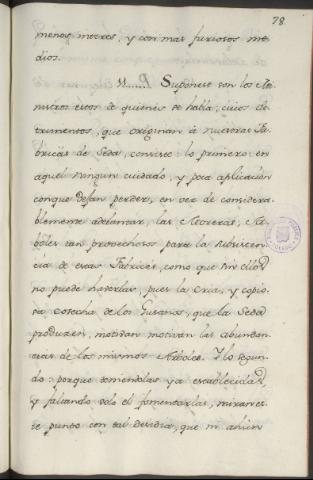 78
menos metres, y con mas furiosos me-
dios.
11...... R. Suponese son los Ma-
nistros estos de quienes se habla; cuios de-
trimentos, que originan à nuestras Fa-
bricas de Seda, consiste: lo primero en
aquel ningun cuidado, y poca aplicacion
conque dejan perder, en vez de considera-
blemente adelantar, las Moreras, Ar-
boles tan provechosos para la subsisten-
cia de estas Fabricas, como que sin ellos
no puede haverlas, pues la cria, y copio-
sa cosecha de los Gusanos, que la Seda
producen, motivan las abundan-
cias de los mismos Arboles. Y lo segun-
do: porque teniendolas ya establecidas,
y faltando solo el fomentarlas, miran es-
te punto con tal desidia, que ni ahun